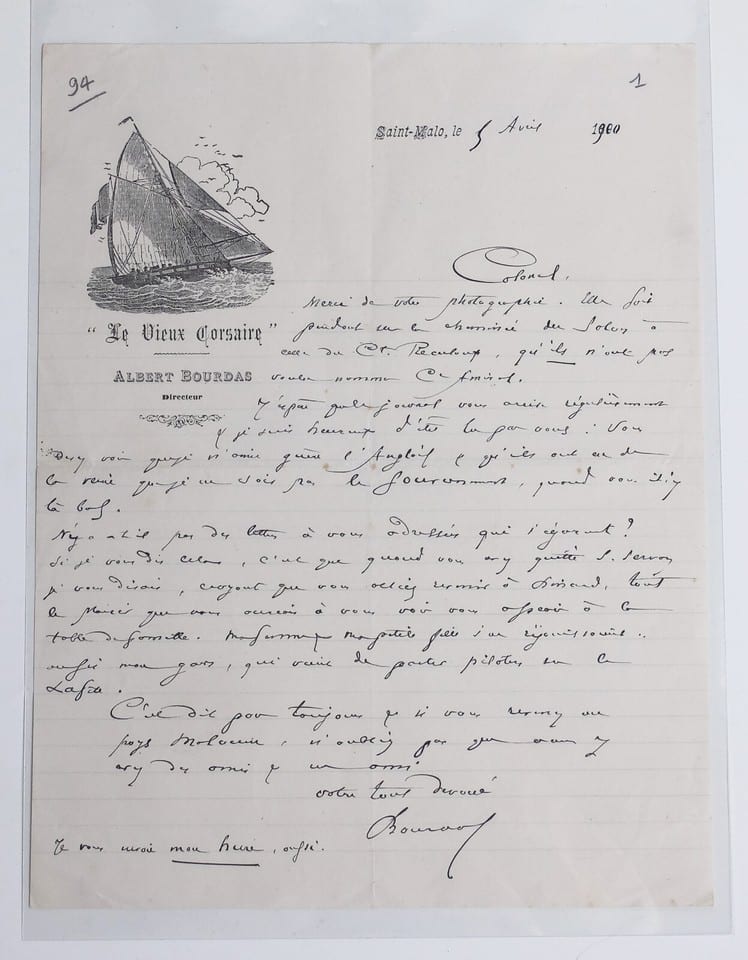 94
1
Saint-Malo, le 5 Avril 1900
Colonel,
Merci de votre photographie. Elle fait
pendant sur la cheminée du Salon à
celle du Ct. , qu'ils n'ont pas
voulu nommer Ct Amiral.
"Le Vieux Corsaire"
ALBERT BOURDAS
Directeur
J'espère que le journal vous arrive régulièrement
& je suis heureux d'être lu par vous ! Vous
devez voir que je n'aime guère l'Anglais & qu'ils ont eu de
la veine que je ne sois pas le Gouvernement, quand vous étiez
là bas.
N'y a-t-il pas des lettres à vous adressées qui s'égarent ?
Si je vous dis cela, c'est que quand vous avez quitté S. Servan
je vous disais, croyant que vous alliez revenir à Dinard, tout
le plaisir que nous aurions à vous voir vous asseoir à la
table de famille. Ma femme & mes petites filles s'en réjouissaient..
aussi mon gars, qui vient de partir pilotin sur le
.
C'est dit pour toujours & si vous revenez au
pays Malouin, n'oubliez pas que vous y
avez des amis & un ami
votre tout dévoué
Bourdas
Je vous envoie mon livre, aussi.